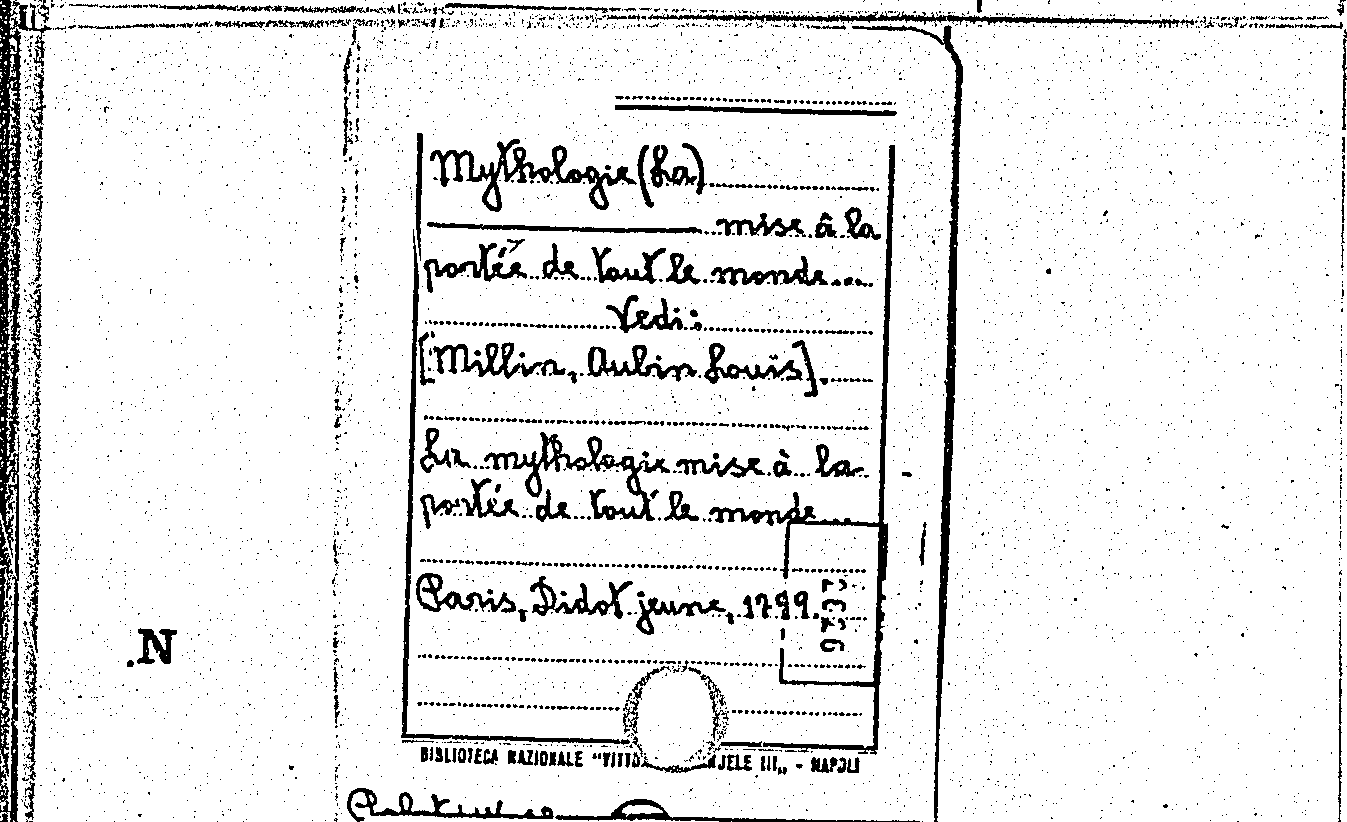 Mythologie (La)
mise à la
portée de tout le monde...
Vedi:
[Millin, Aubin Louis].
La mythologie mise à la
portée de tout le monde...
Paris, Didot jeune, 1799.
.N
BIBLIOTECA NAZIONALE "VITTO UELE III„ - NAPOLI